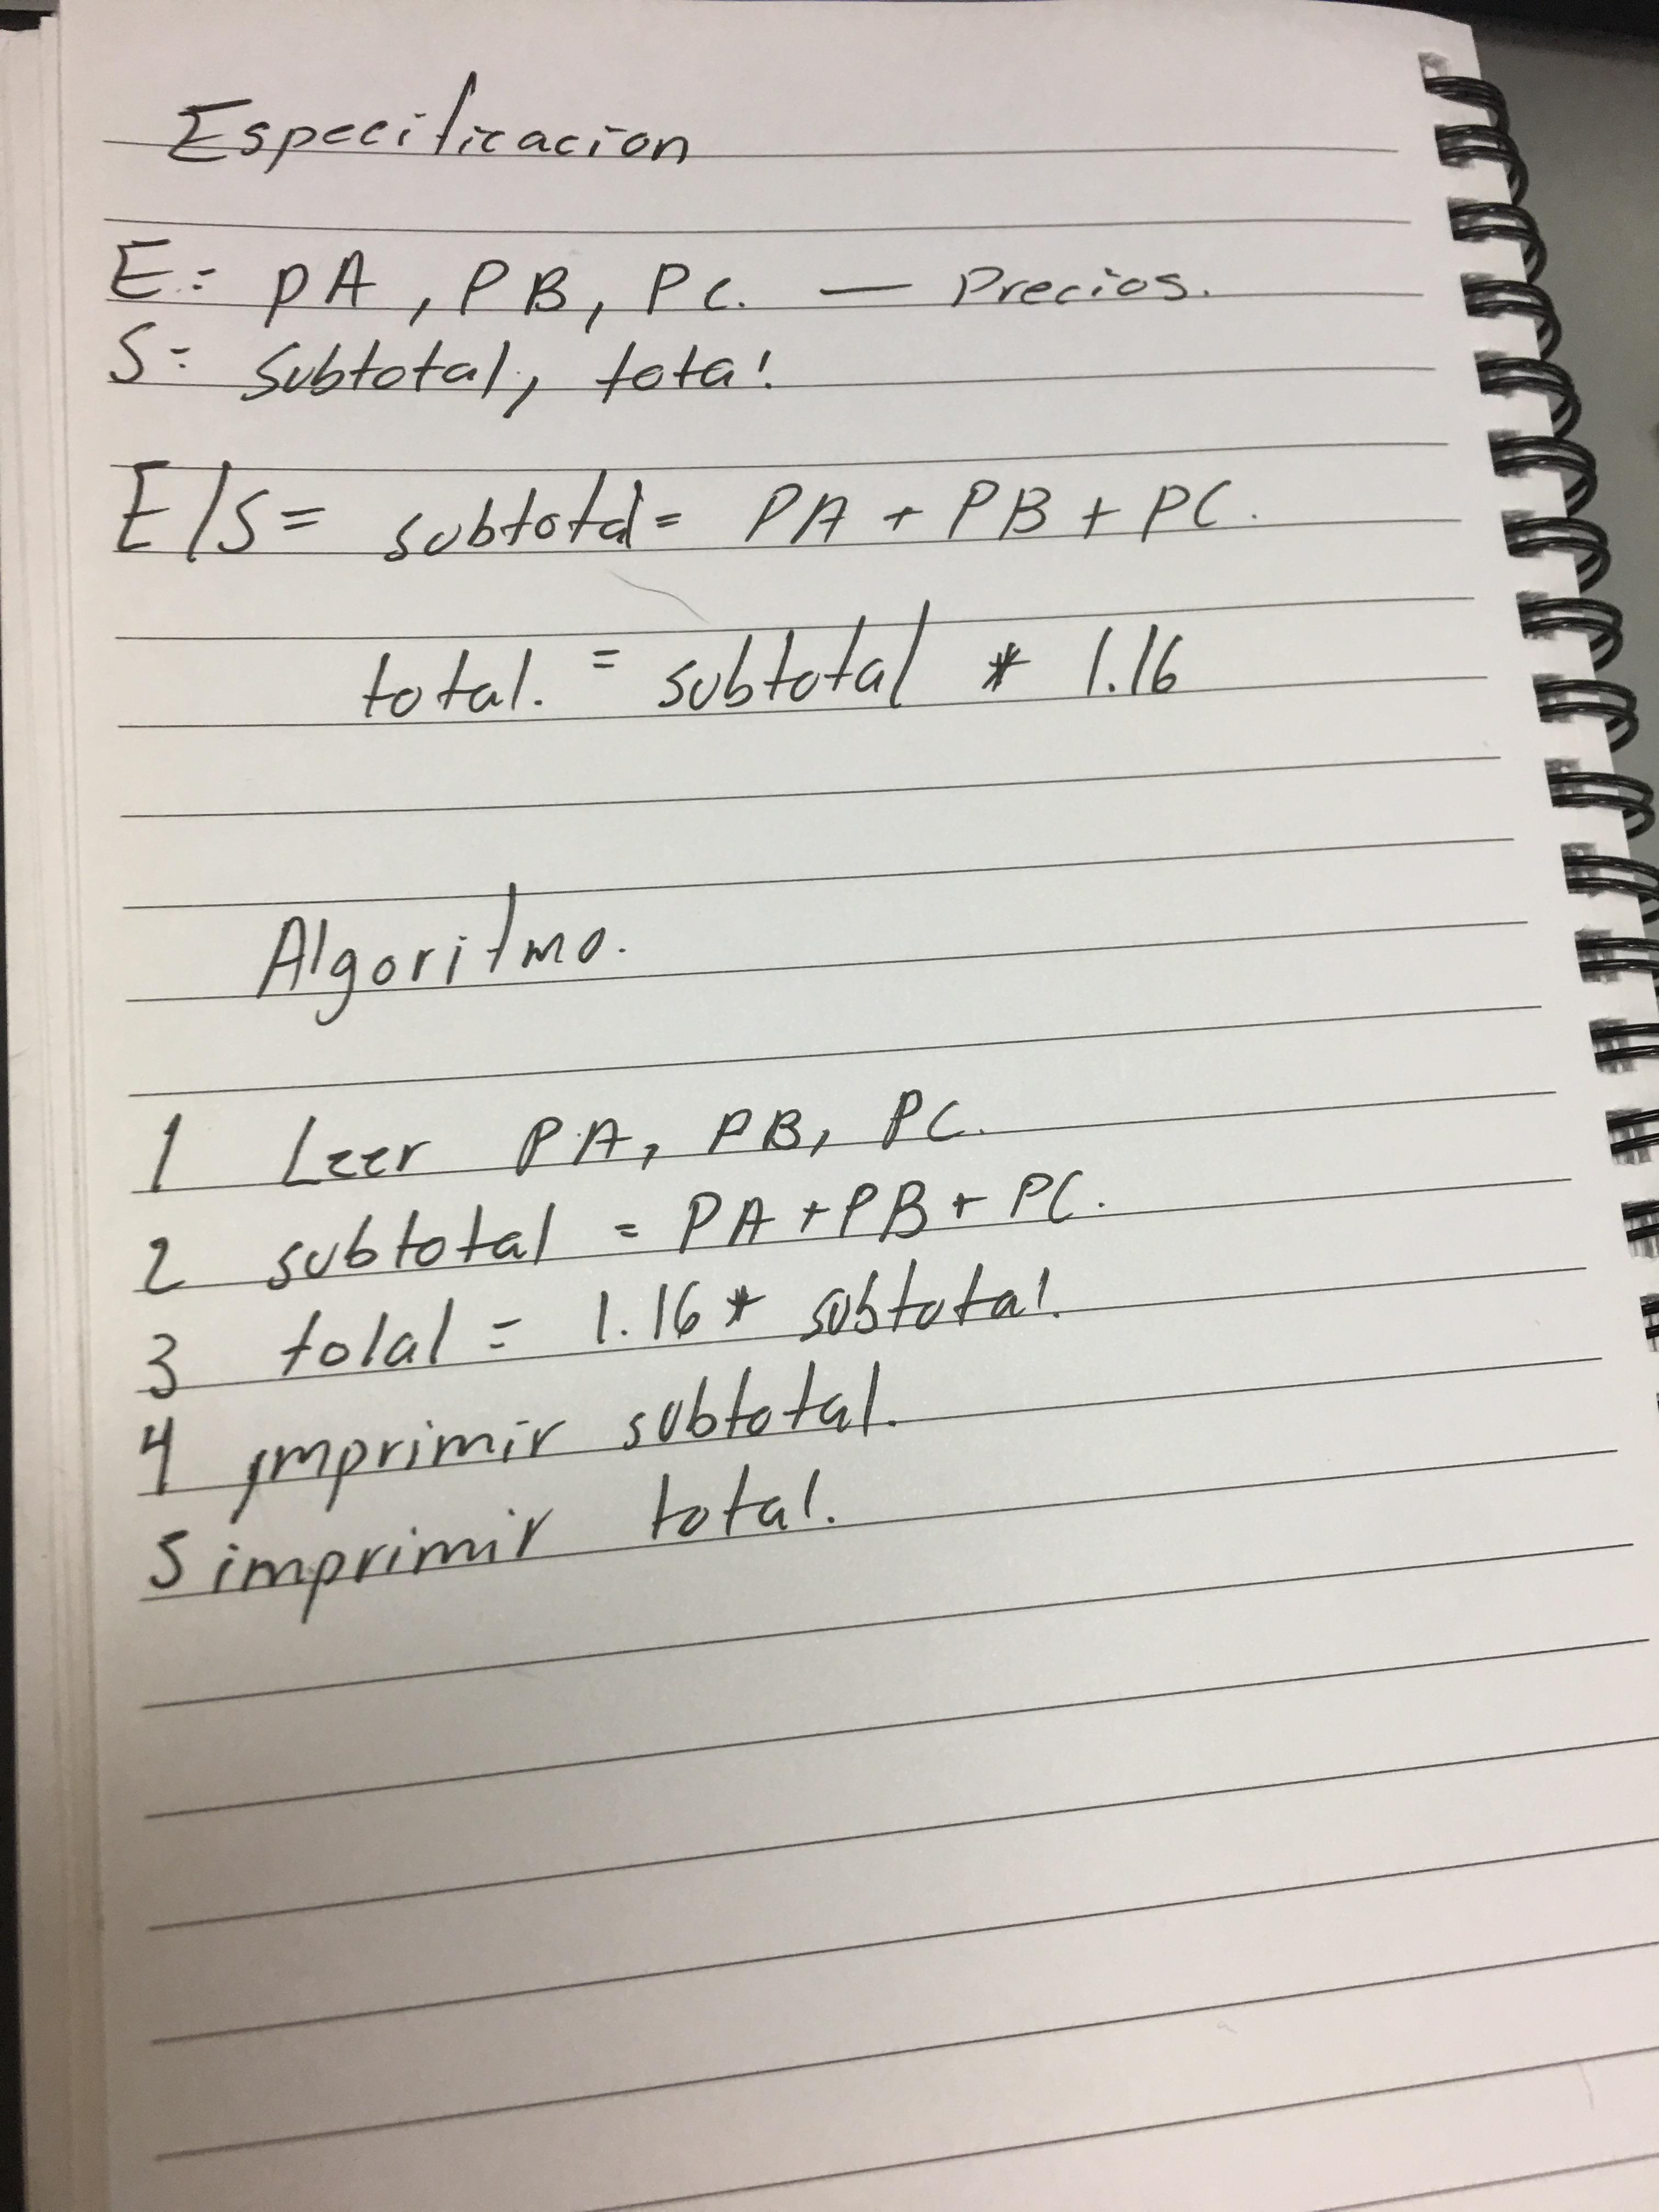 Especificación
E: PA, PB, PC. — Precios.
S: Subtotal, total
E/S= subtotal= PA + PB + PC.
total. = subtotal * 1.16
Algoritmo.
1 Leer PA, PB, PC.
2 subtotal = PA + PB + PC.
3 total = 1.16 * subtotal.
4 imprimir subtotal.
5 imprimir total.